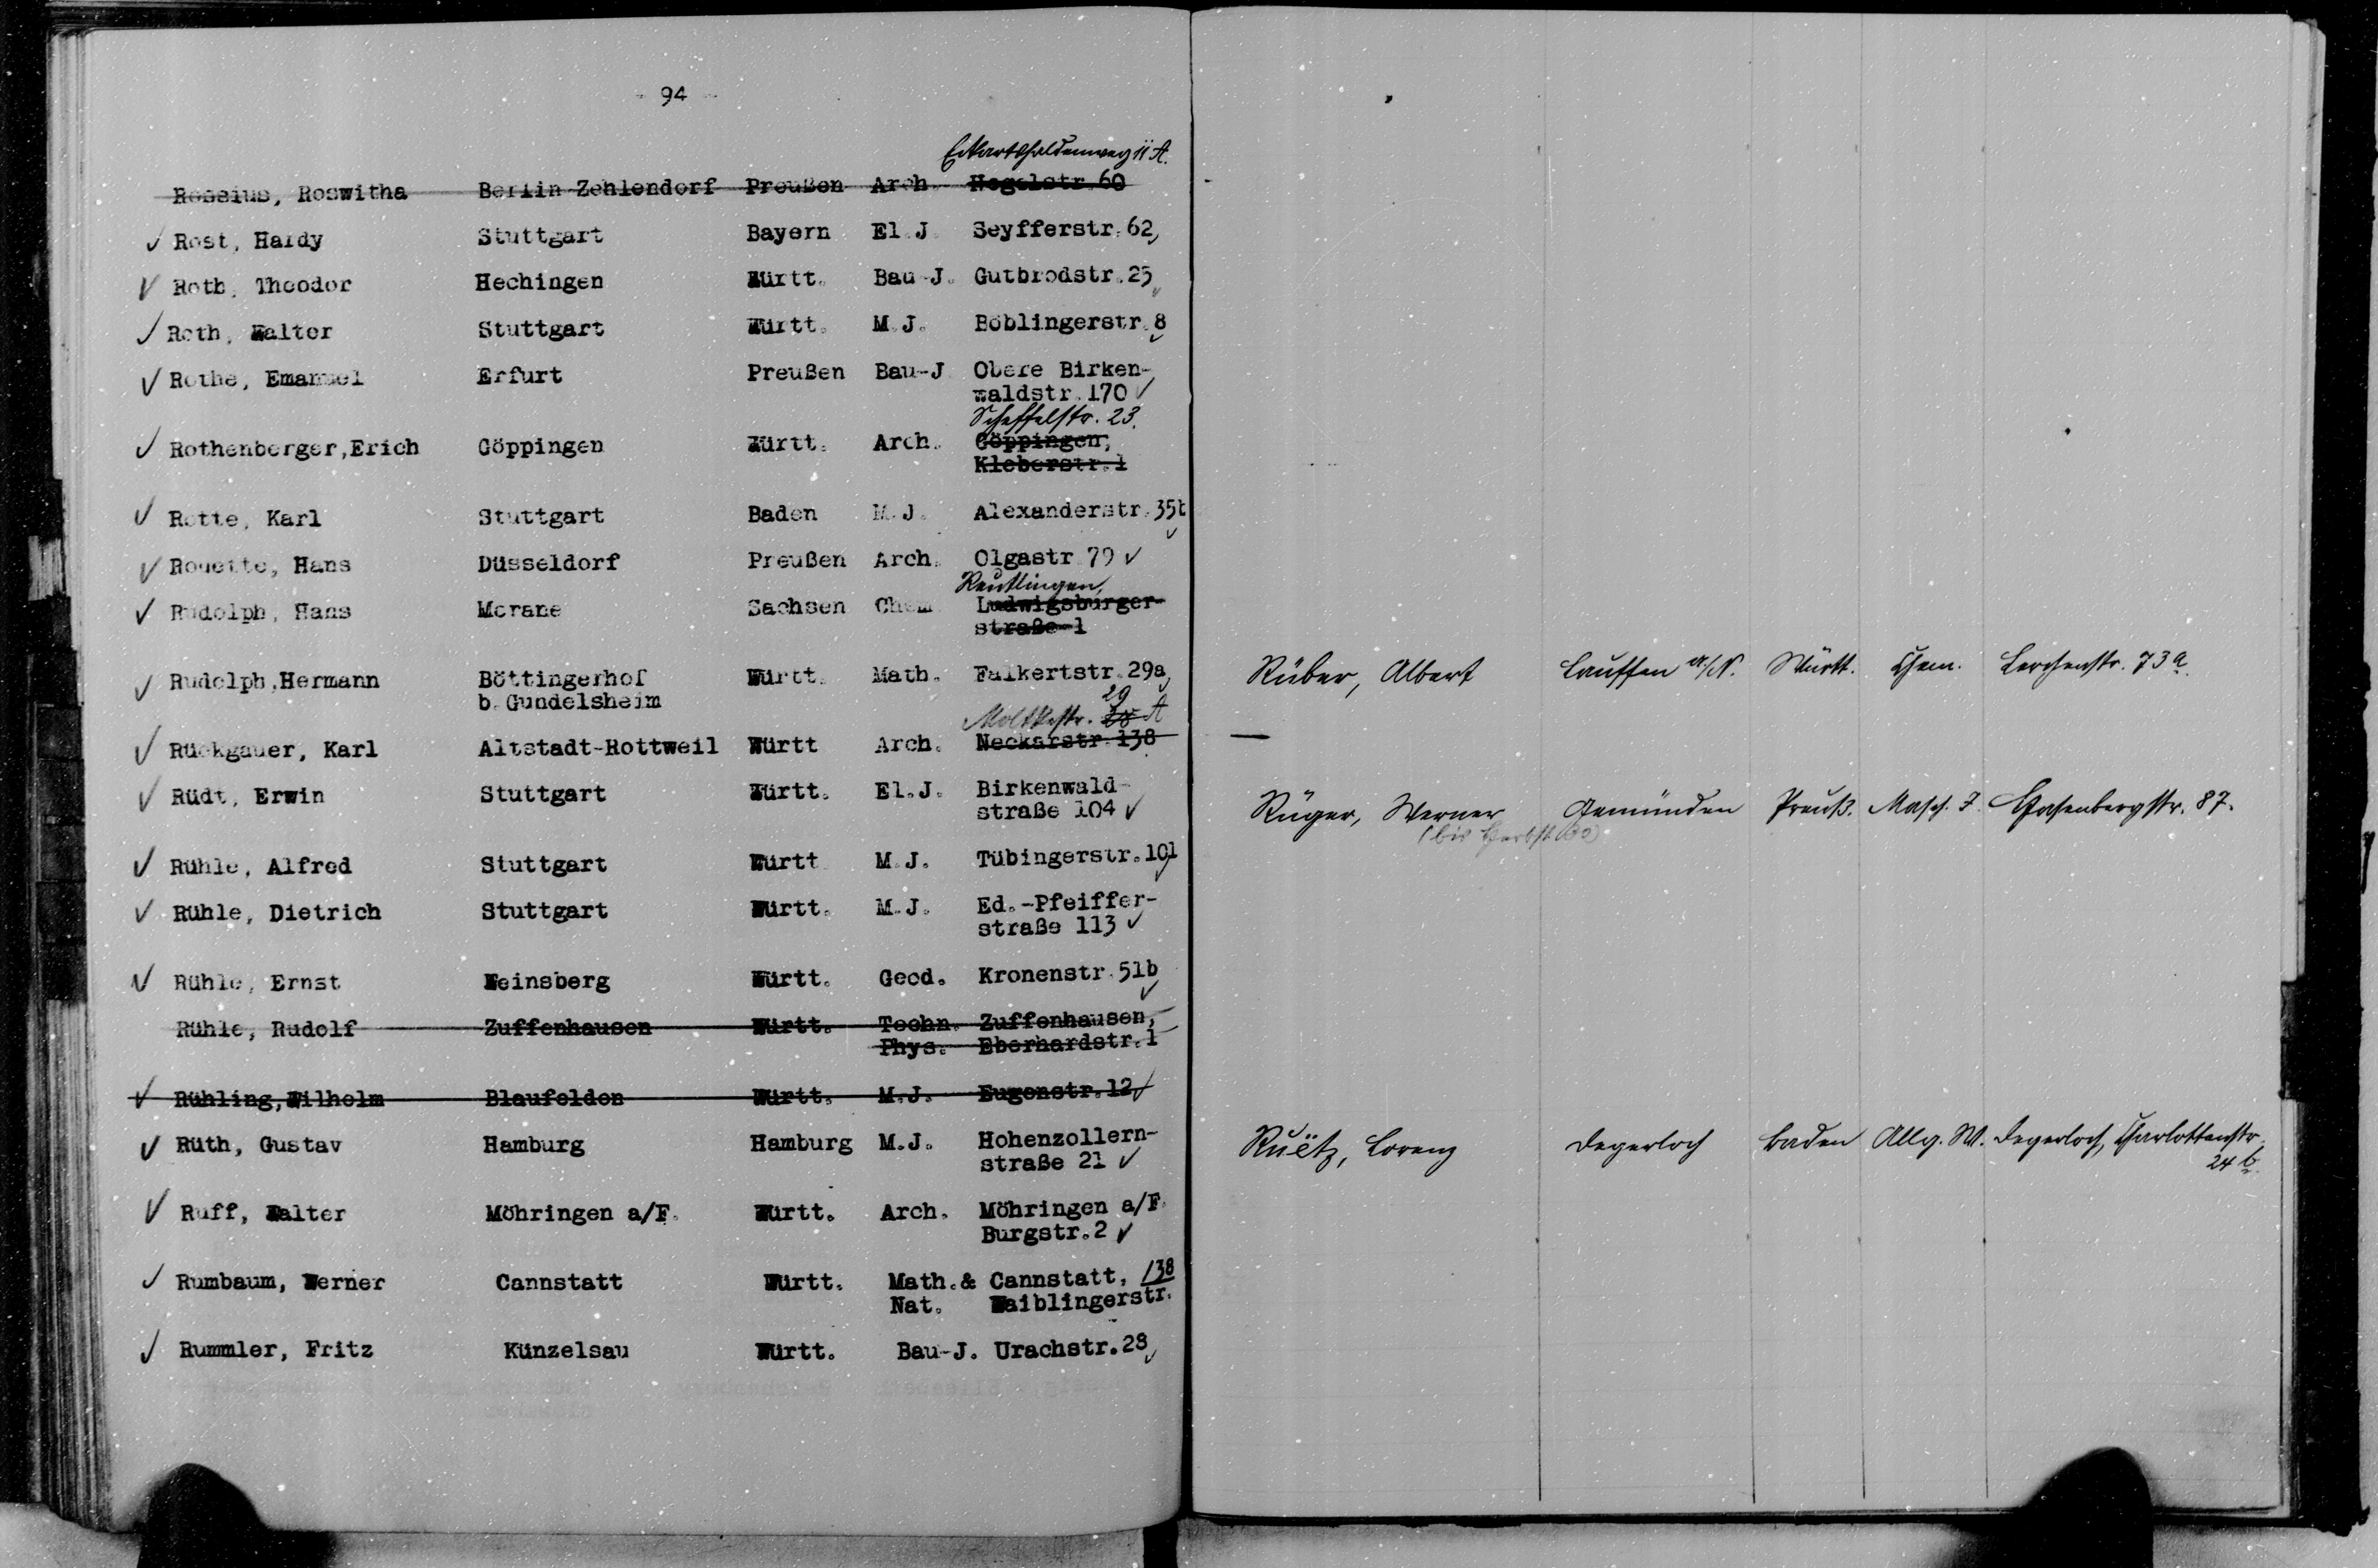 94
Eckartshaldenweg 11 A.
Rossius, Roswitha Berlin-Zehlendorf Preußen Arch. Hegelstr. 60
✓ Rost, Hardy Stuttgart Bayern El.J. Seyfferstr. 62 ✓
✓ Roth, Theodor Hechingen Württ. Bau-J. Gutbrodstr. 25 ✓
✓ Roth, Walter Stuttgart Württ. M.J. Böblingerstr. 8 ✓
✓ Rothe, Emanuel Erfurt Preußen Bau-J. Obere Birken-
waldstr. 170 ✓
Scheffelstr. 23.
✓ Rothenberger, Erich Göppingen Württ. Arch. Göppingen,
Kleberstr. 1
✓ Rotte, Karl Stuttgart Baden M.J. Alexanderstr. 35b ✓
✓ Rouette, Hans Düsseldorf Preußen Arch. Olgastr. 79 ✓
Reutlingen,
✓ Rudolph, Hans Merane Sachsen Chem. Ludwigsburger-
straße 1
✓ Rudolph, Hermann Böttingerhof Württ. Math. Falkertstr. 29a ✓
b. Gundelsheim
29
Moltkestr. A
✓ Rückgauer, Karl Altstadt-Rottweil Württ. Arch. Neckarstr. 138
✓ Rüdt, Erwin Stuttgart Württ. El.J. Birkenwald-
straße 104 ✓
✓ Rühle, Alfred Stuttgart Württ. M.J. Tübingerstr. 101 ✓
✓ Rühle, Dietrich Stuttgart Württ. M.J. Ed.-Pfeiffer-
straße 113 ✓
✓ Rühle, Ernst Weinsberg Württ. Geod. Kronenstr. 51b ✓
Rühle, Rudolf Zuffenhausen Württ. Techn. Zuffenhausen,
Phys. Eberhardstr. 1
✓ Rühling, Wilhelm Blaufelden Württ. M.J. Eugenstr. 12 ✓
✓ Rüth, Gustav Hamburg Hamburg M.J. Hohenzollern-
straße 21 ✓
✓ Ruff, Walter Möhringen a/F. Württ. Arch. Möhringen a/F.
Burgstr. 2 ✓
✓ Rumbaum, Werner Cannstatt Württ. Math.& Cannstatt, 138
Nat. Waiblingerstr.
✓ Rummler, Fritz Künzelsau Württ. Bau-J. Urachstr. 28 ✓
Rüber, Albert Lauffen a/N. Württ. Chem. Lerchenstr. 73 a.
—
Rüger, Werner Gemünden Preuß. Masch. I. Hasenbergstr. 87.
(bis Herbst 32)
Ruëtz, Lorenz Degerloch Baden Allg. W. Degerloch, Charlottenstr.
24 b.